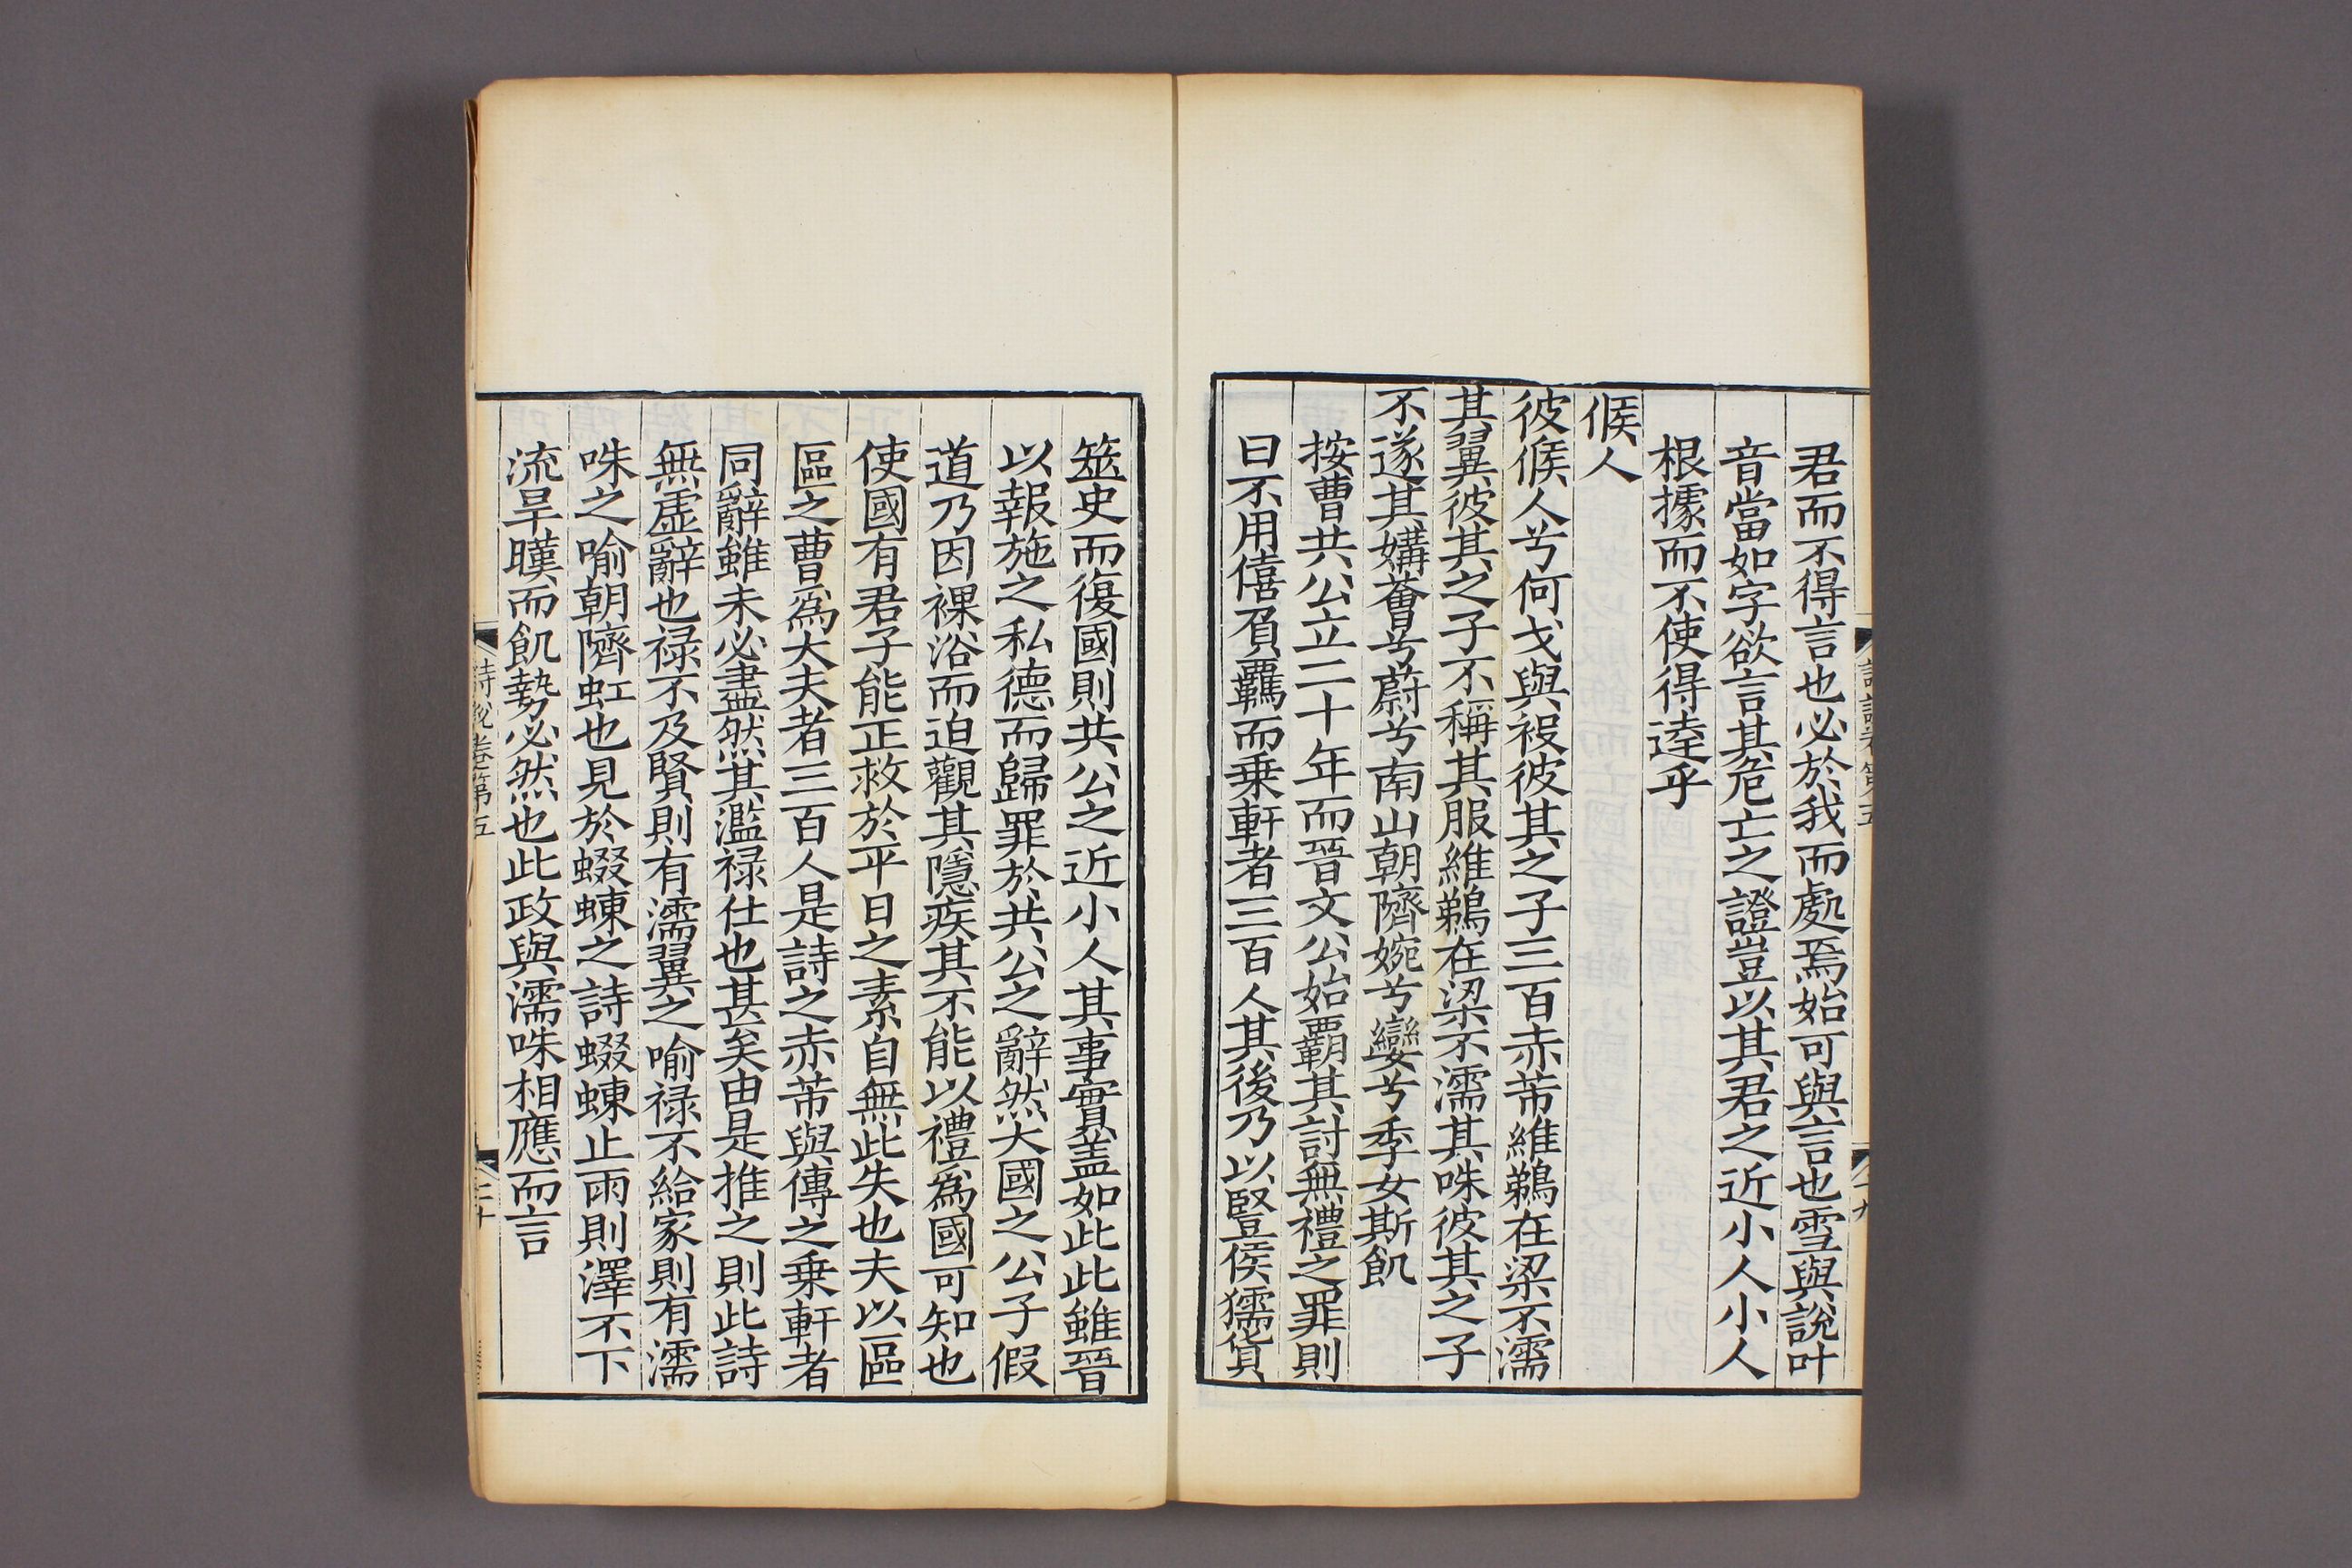 君而不得言也必於我而處焉始可與言也雪與說叶
音當如字欲言其危亡之證豈以其君之近小人小人
根據而不使得逹乎
候人
彼候人兮何戈與祋彼其之子三百赤芾維鵜在梁不濡
其翼彼其之子不稱其服維鵜在梁不濡其咮彼其之子
不遂其媾薈兮蔚兮南山朝隮婉兮孌兮季女斯飢
按曹共公立二十年而晉文公始覇其討無禮之罪則
曰不用僖負羈而乗軒者三百人其後乃以豎侯獳貨
筮史而復國則共公之近小人其事實盖如此此雖晉
以報施之私德而歸罪於共公之辭然大國之公子假
道乃因裸浴而迫觀其隱疾其不能以禮爲國可知也
使國有君子能正救於平日之素自無此失也夫以區
區之曹爲大夫者三百人是詩之赤芾與傳之乗軒者
同辭雖未必盡然其濫禄仕也甚矣由是推之則此詩
無虛辭也禄不及賢則有濡翼之喻禄不給家則有濡
咮之喻朝隮虹也見於蝃蝀之詩蝃蝀止雨則澤不下
流旱暵而飢勢必然也此政與濡咮相應而言
詩說卷第五
二十